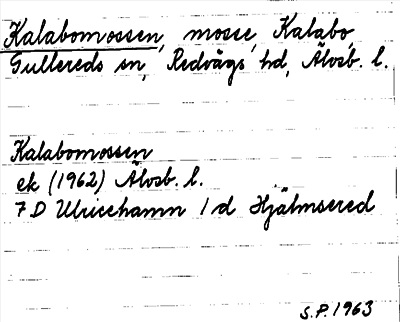 Kalabomossen, mosse, Kalabo,
Gullereds sn, Redvägs hd, Älvsb. l.
Kalabomossen
ek (1962) Älvsb. l.
7 D Ulricehamn 1 d Hjälmsered
S.P. 1963